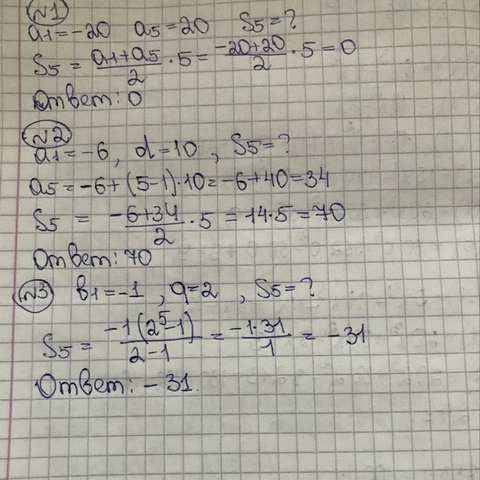 №1
a1=-20 a5=20 S5=?
S5 = a1+a5/2 · 5 = -20+20/2 · 5 = 0
Ответ: 0
№2
a1=-6, d=10, S5=?
a5=-6+(5-1)·10=-6+40=34
S5 = -6+34/2 · 5 = 14·5=70
Ответ: 70
№3 b1=-1, q=2, S5=?
S5 = -1(2^5-1)/2-1 = -1·31/1 = -31
Ответ: -31.